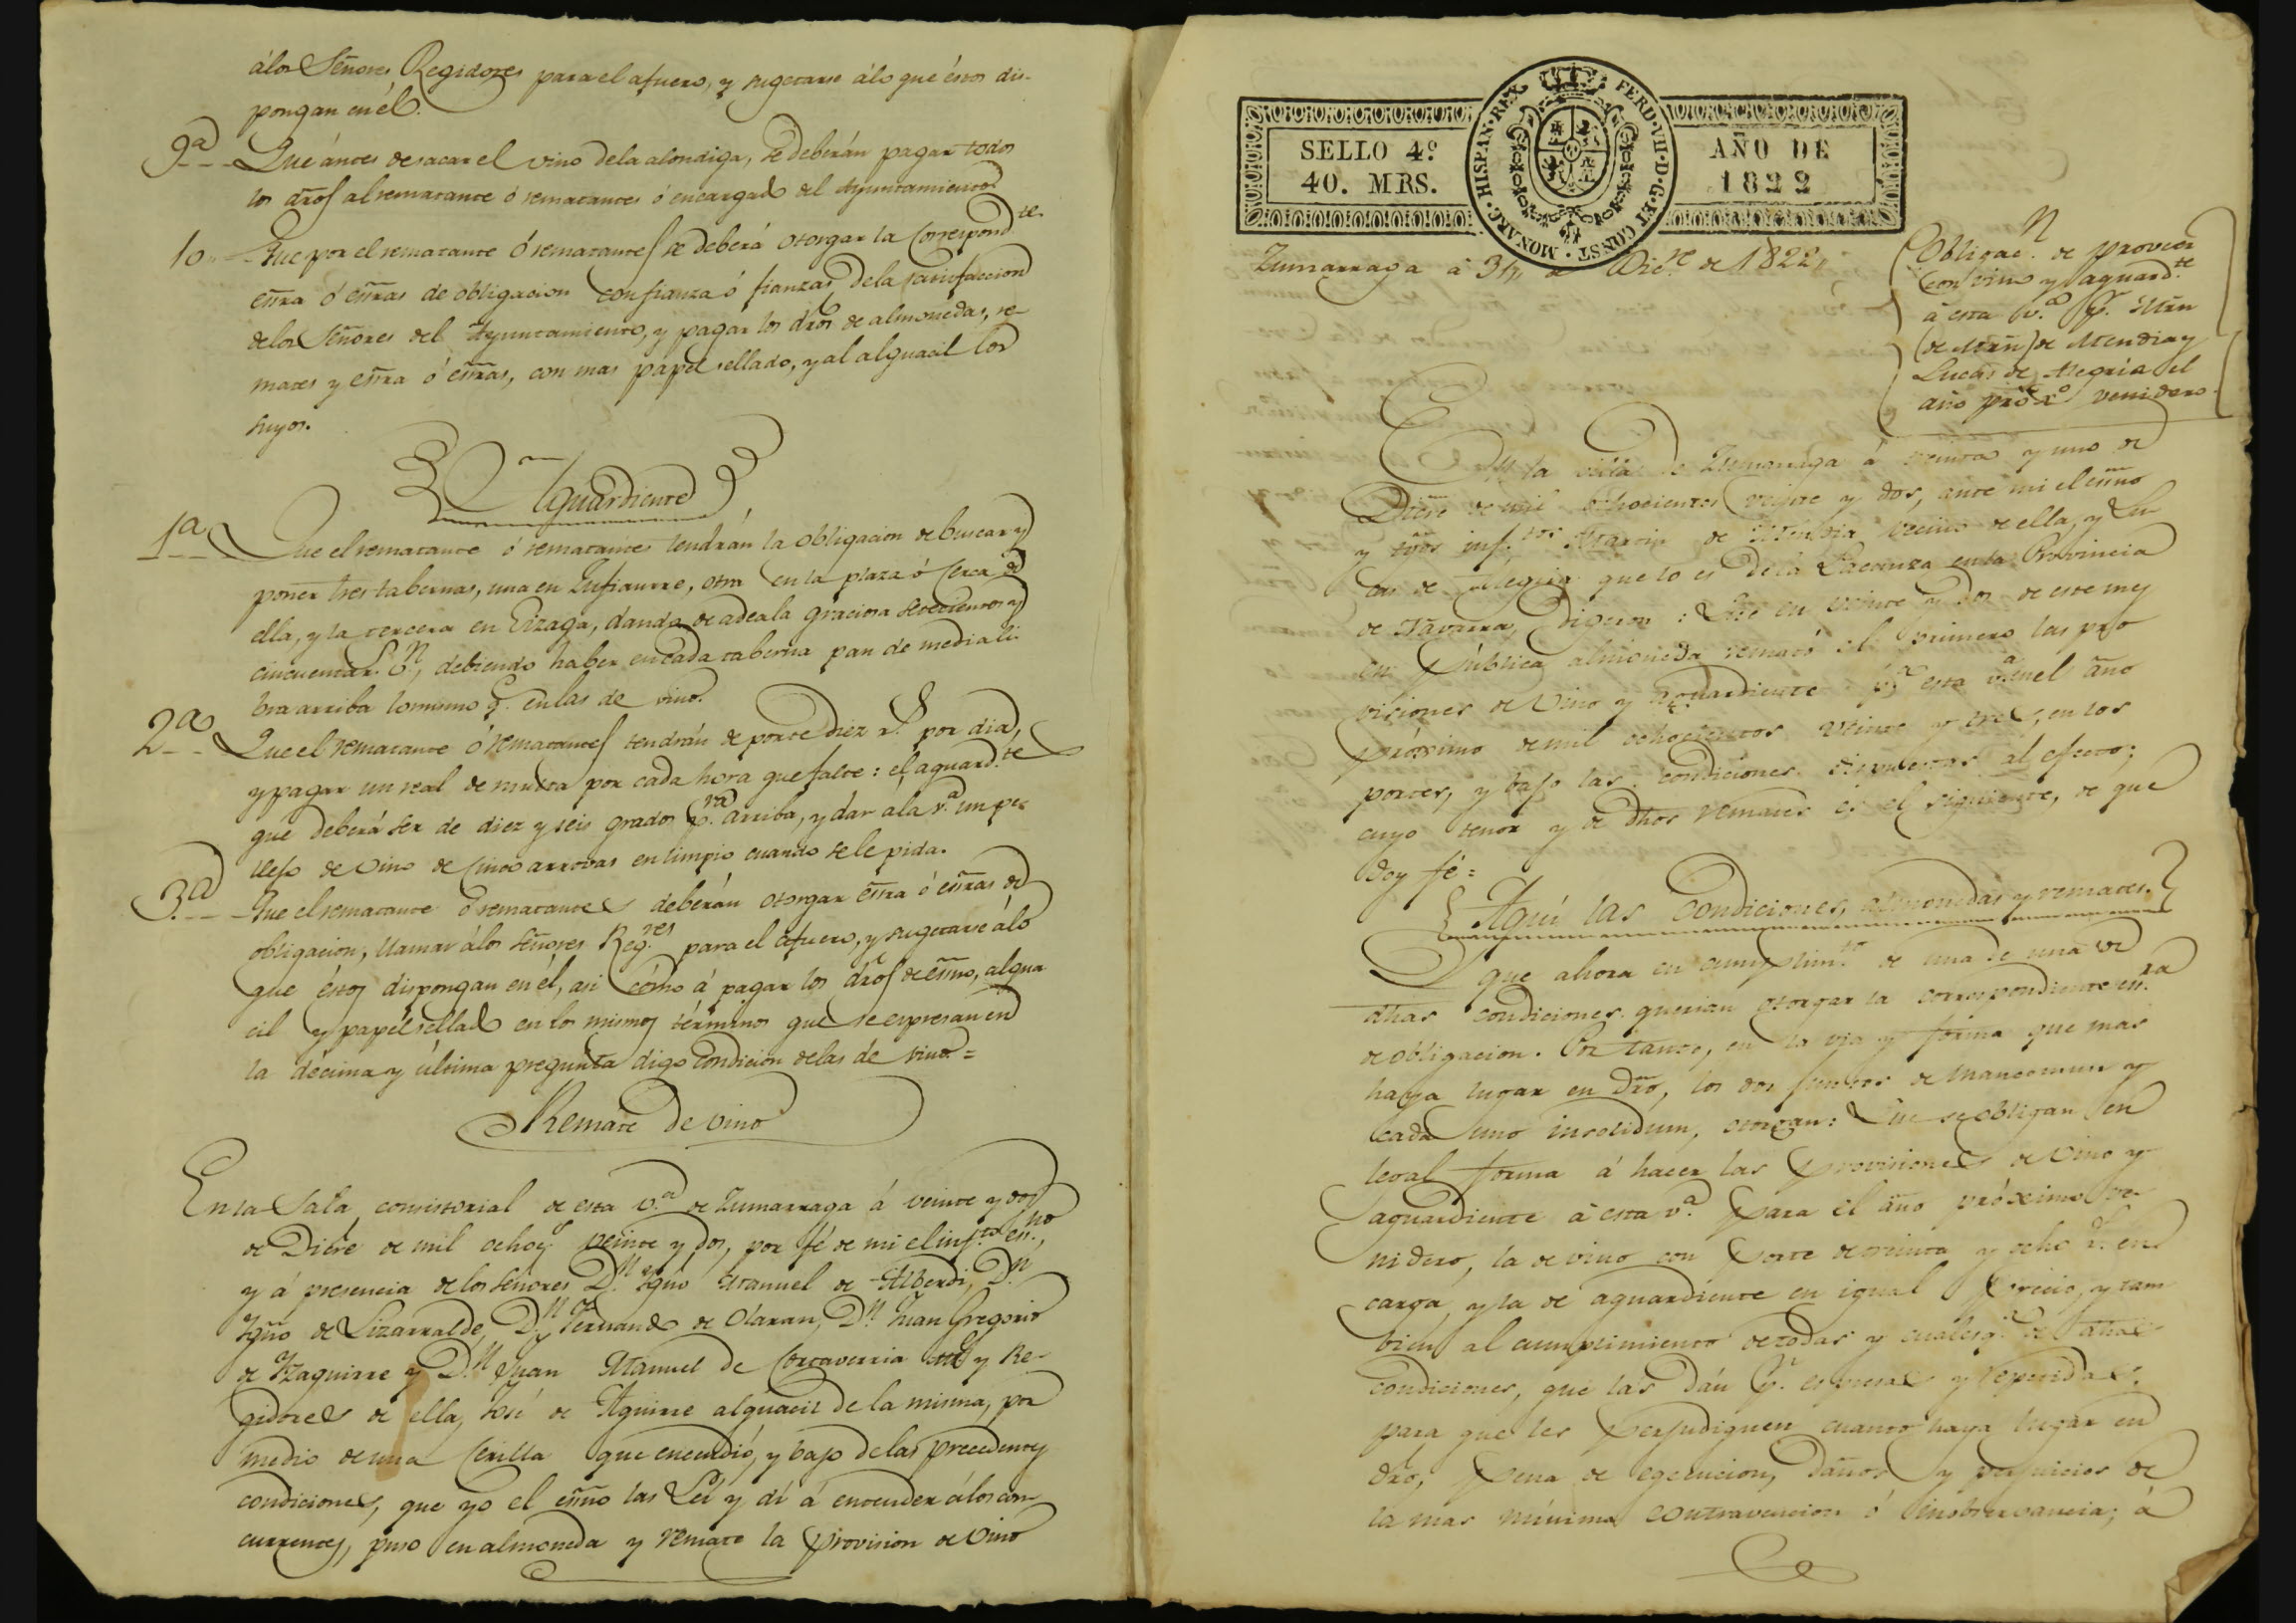 álos Señores Regidores para el afuero, y sugetarse álo que éstos dis-
pongan en él.
9ª Que ántes de sacar el vino dela alondiga, se deberán pagar todos
los dros al rematante ó rematantes ó encargado del Ayuntamiento.
10 Que por el rematante ó rematantes se deberá otorgar la correspond.te
esra ó esras de obligacion con fianza ó fianzas dela satisfaccion
delos Señores del Ayuntamiento, y pagar los dros de almonedas, re-
mates y esra ó esras, con mas papel sellado, y al alguacil los
suyos.
Aguardiente
1ª Que el rematante ó rematantes tendrán la obligacion de buscar y
poner tres tabernas, una en Zufiaurre, otra en la plaza ó cerca de
ella, y la tercera en Eizaga, dando de adeala graciosa setecientos y
cincuenta r.s v.n, debiendo haber en cada taberna pan de media li-
bra arriba lo mismo q.e en las de vino.
2ª Que el rematante ó rematantes tendrán de porte diez r.s por dia,
y pagar un real de multa por cada hora que falte: el aguard.te
que deberá ser de diez y seis grados p.ra arriba, y dar ála v.ª un pe-
llejo de vino de cinco arrobas en limpio cuando se le pida.
3.ª Que el rematante ó rematantes deberán otorgar esra ó esras de
obligacion, llamar álos señores Reg.res para el afuero, y sugetarse álo
que éstos dispongan en él, asi cómo á pagar los dros de esno, algua-
cil y papel sellado en los mismos términos que se espresan en
la décima y última pregunta digo condicion delas de vino.=
Remate de vino
En la Sala consistorial de esta v.ª de Zumarraga á veinte y dos
de Dicre de mil ochoc.s veinte y dos, por fé de mi el inf.to es.no,
y á presencia de los señores D.n Igño Manuel de Alberdi, D.n
Igño de Lizarralde, D.n Fernando de Olaran, D.n Juan Gregorio
de Yzaguirre y D.n Juan Manuel de Cortaverria y Re-
gidores de ella, José de Aguirre alguacil de la misma, por
medio de una cerilla que encendió, y bajo de las precedentes
condiciones, que yo el esno las Leí y dí á entender álos con-
currentes, puso en almoneda y remate la Provision de Vino
SELLO 4º
40. MRS.
HISPAN·REX FERD·VII·D·G·ET CONST·MONARC·
AÑO DE
1822
Zumarraga á 31 de Dic.re de 1822
Obligac.n de proveer
con vino y aguard.te
á esta v.ª p.r Mrn
(de Mrn) de Mendia y
Lucas de Alegria el
año próx.o venidero.
En la villa de Zumarraga á treinta y uno de
Dicre de mil ochocientos veinte y dos, ante mi el esno
y tgos inf.tos Martin de Mendia vecino de ella, y Lu-
cas de Alegria que lo es de la Lacunza en la Provincia
de Navarra, digeron: Que en veinte y dos de este mes
en pública almoneda remató el primero las pro-
visiones de Vino y Aguardiente p.ª esta v.ª en el año
próximo de mil ochocientos veinte y tres, en los
portes, y bajo las condiciones dispuestas al efecto;
cuyo tenor y de dhos remates es el siguiente, de que
doy fé=
Aquí las condiciones, almonedas y remates.
Y que ahora en cumplim.to de una de una de
dhas condiciones querian otorgar la correspondiente es.ra
de obligacion. Por tanto, en la via y forma que mas
haya lugar en dro, los dos juntos de mancomun y
cada uno insolidum, otorgan: Que se obligan en
legal forma á hacer las Provisiones de Vino y
aguardiente á esta v.ª para el año próximo ve-
nidero, la de vino con porte de treinta y ocho r.s en
carga, y la de aguardiente en igual precio, y tam-
bien al cumplimiento de todas y cualesq.ª de dhas
condiciones, que las dán p.r espresas y repetidas,
para que les perjudiquen cuanto haya lugar en
dro, pena de egecucion, daños y perjuicios de
la mas minima contravencion ó inobservancia; á